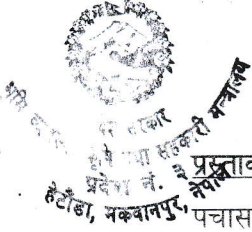 प्रदेश सरकार
कृषि तथा सहकारी मन्त्रालय
प्रदेश नं. ३
हेटौंडा, मकवानपुर, नेपाल
प्रस्ताव
पचास